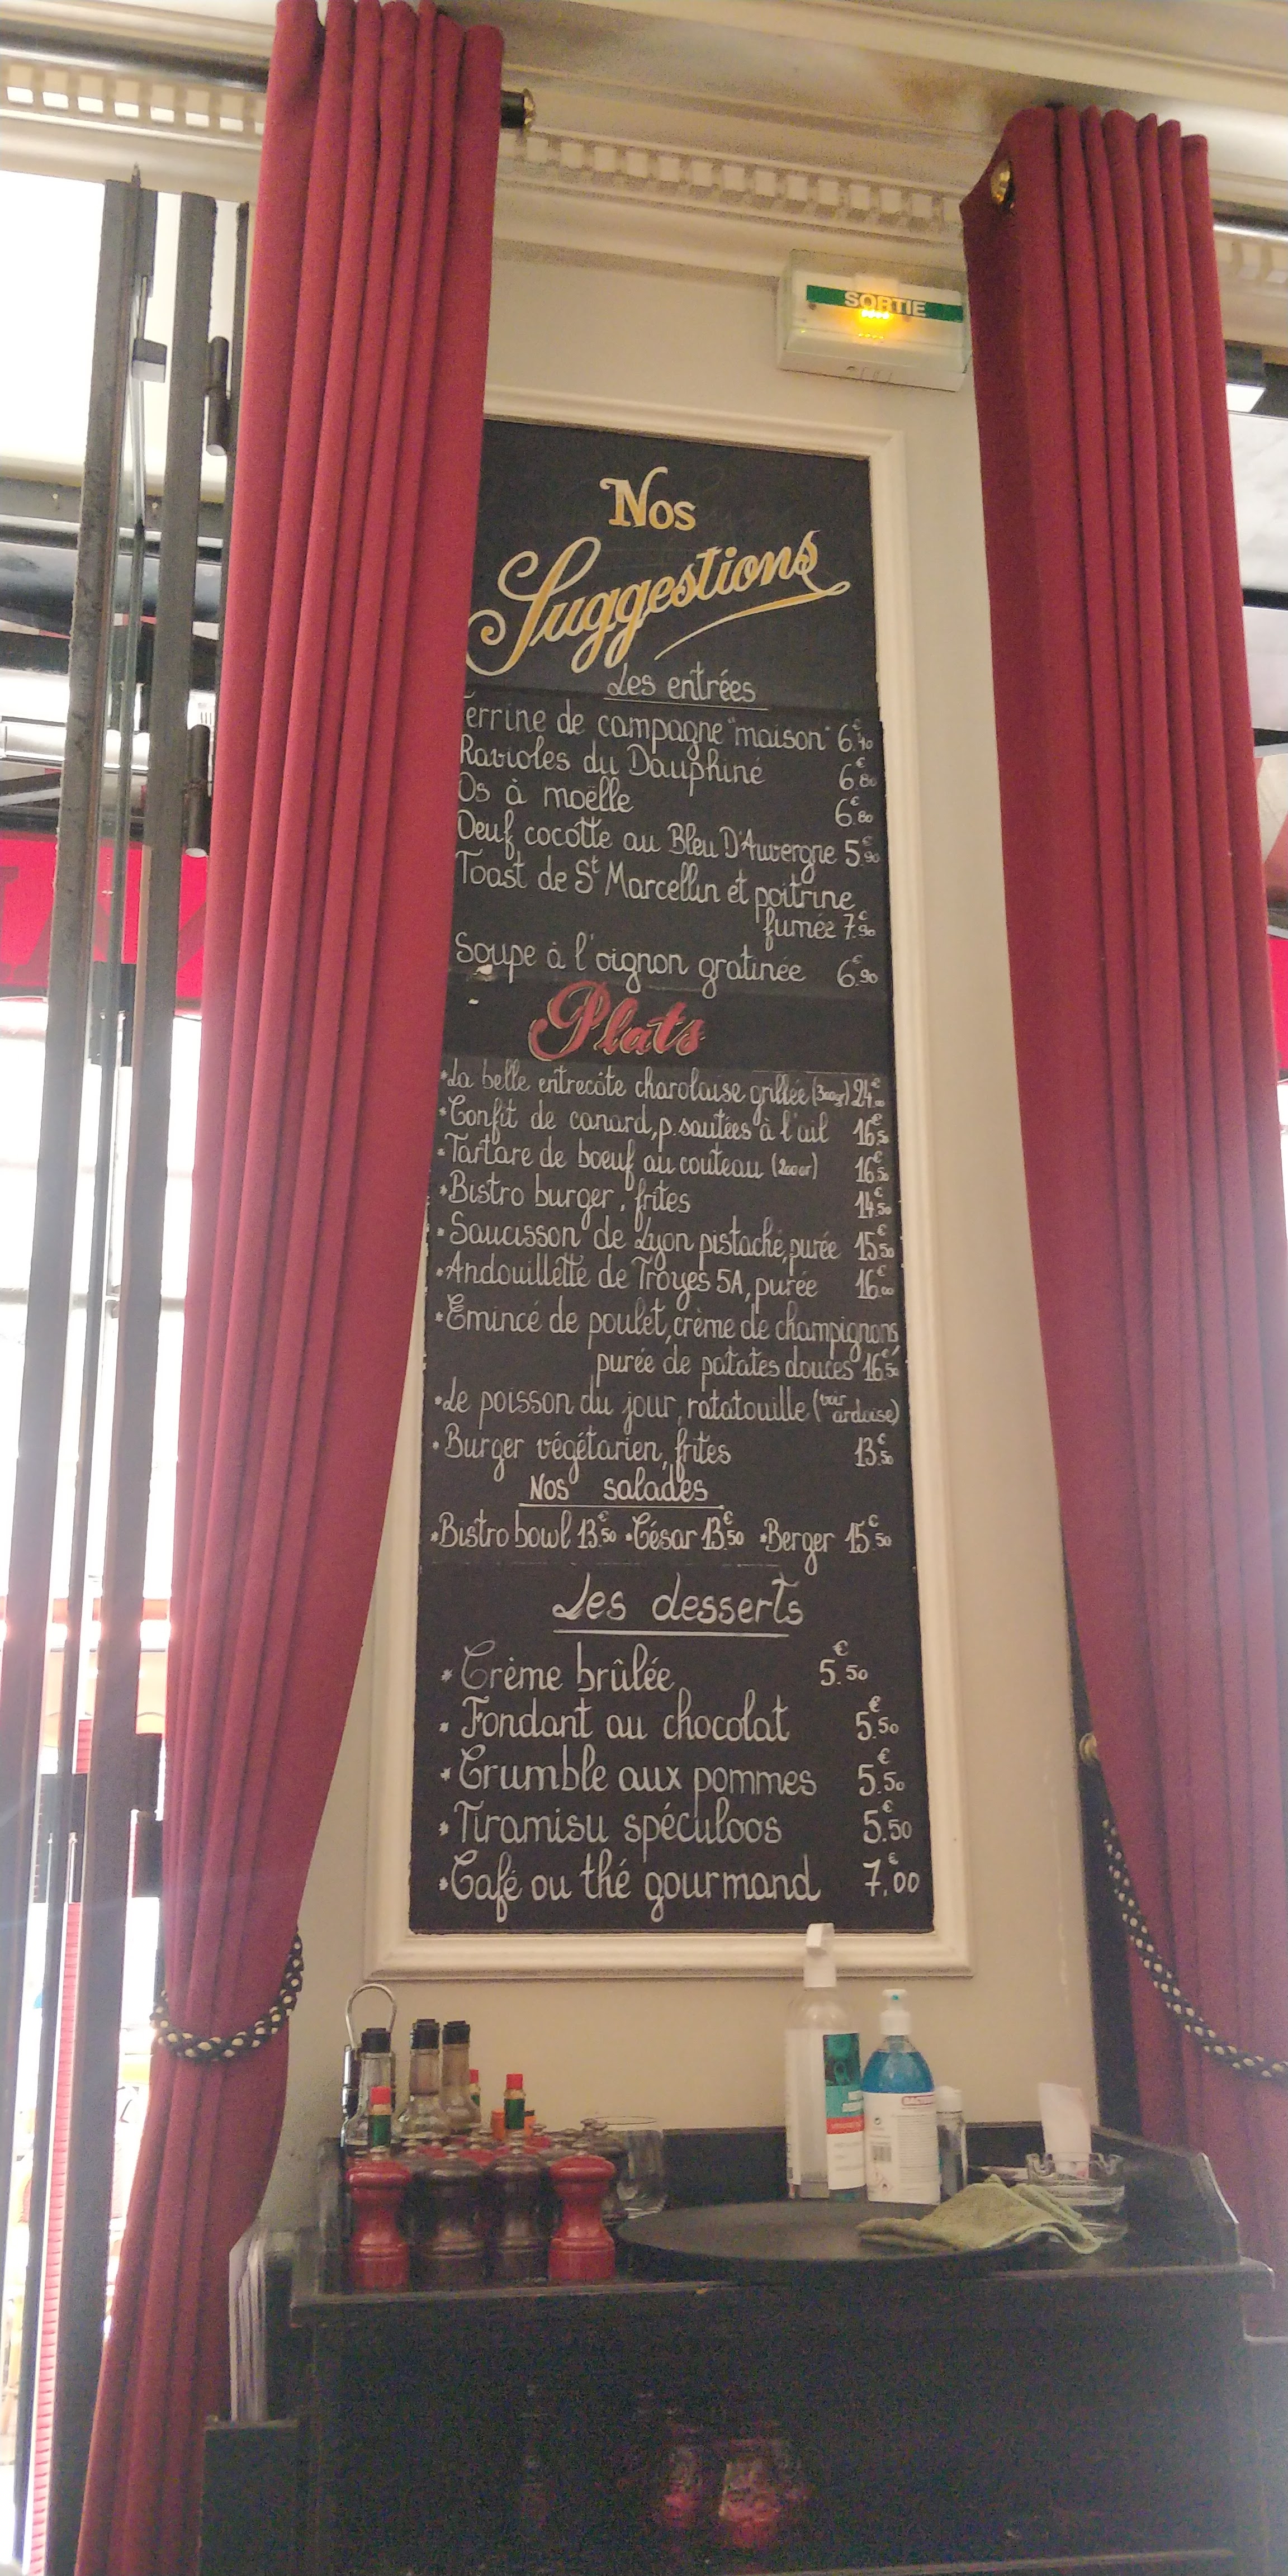 SORTIE
Nos
Suggestions
Les entrées
Terrine de campagne "maison" 6.€40
Ravioles du Dauphiné 6.€80
Os à moëlle 6.€80
Oeuf cocotte au Bleu D'Auvergne 5.€90
Toast de St Marcellin et poitrine
fumée 7.€90
Soupe à l'oignon gratinée 6.€90
Plats
*La belle entrecôte charolaise grillée (300gr) 24.€00
*Confit de canard, p. sautées à l'ail 16.€50
*Tartare de boeuf au couteau (200gr) 16.€50
*Bistro burger, frites 14.€50
*Saucisson de Lyon pistaché, purée 15.€50
*Andouillette de Troyes 5A, purée 16.€00
*Emincé de poulet, crème de champignons,
purée de patates douces 16.€50
*Le poisson du jour, ratatouille (voir ardoise)
*Burger végétarien, frites 13.€50
Nos salades
*Bistro bowl 13.€50 *César 13.€50 *Berger 15.€50
Les desserts
* Crème brûlée 5.€50
* Fondant au chocolat 5.€50
* Crumble aux pommes 5.€50
* Tiramisu spéculoos 5.€50
* Café ou thé gourmand 7.€00